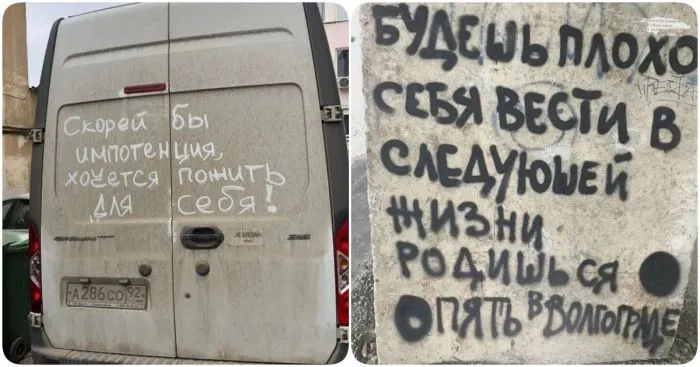 Скорей бы
импотенция,
хочется пожить
для себя!
А286СО 92
БУДЕШЬ ПЛОХО
СЕБЯ ВЕСТИ В
СЛЕДУЮШЕЙ
ЖИЗНИ
РОДИШЬСЯ
ОПЯТЬ В ВОЛГОГРАДЕ